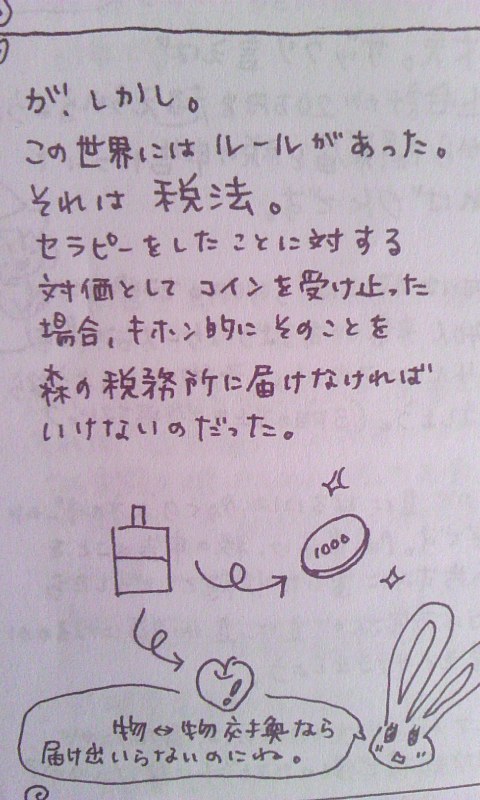 が、しかし。
この世界にはルールがあった。
それは 税法。
セラピーをしたことに対する
対価として コインを受け止った
場合、キホン的にそのことを
森の税務所に届けなければ
いけないのだった。
1000
物⇔物交換なら
届け出いらないのにね。